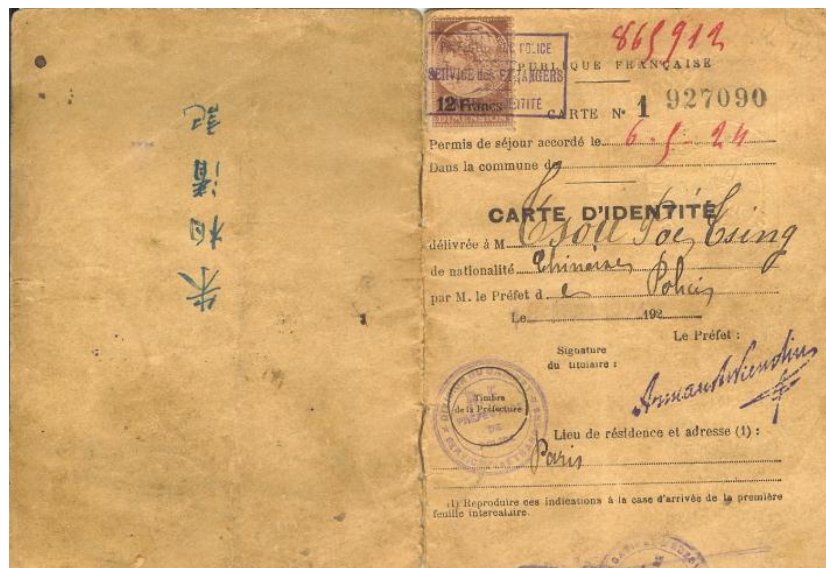 朱柏清記
865912
RÉPUBLIQUE FRANÇAISE
PRÉFECTURE DE POLICE
SERVICE DES ÉTRANGERS
12 Francs
DIMENSION
CARTE N° 1 927090
Permis de séjour accordé le 6-5-24
Dans la commune de
CARTE D'IDENTITÉ
délivrée à M Tsou Poe Tsing
de nationalité Chinoise
par M. le Préfet de Police
Le 192
Le Préfet :
Signature
du titulaire :
Timbre
de la Préfecture
Lieu de résidence et adresse (1) :
Paris
(1) Reproduire ces indications à la case d'arrivée de la première
feuille intercalaire.